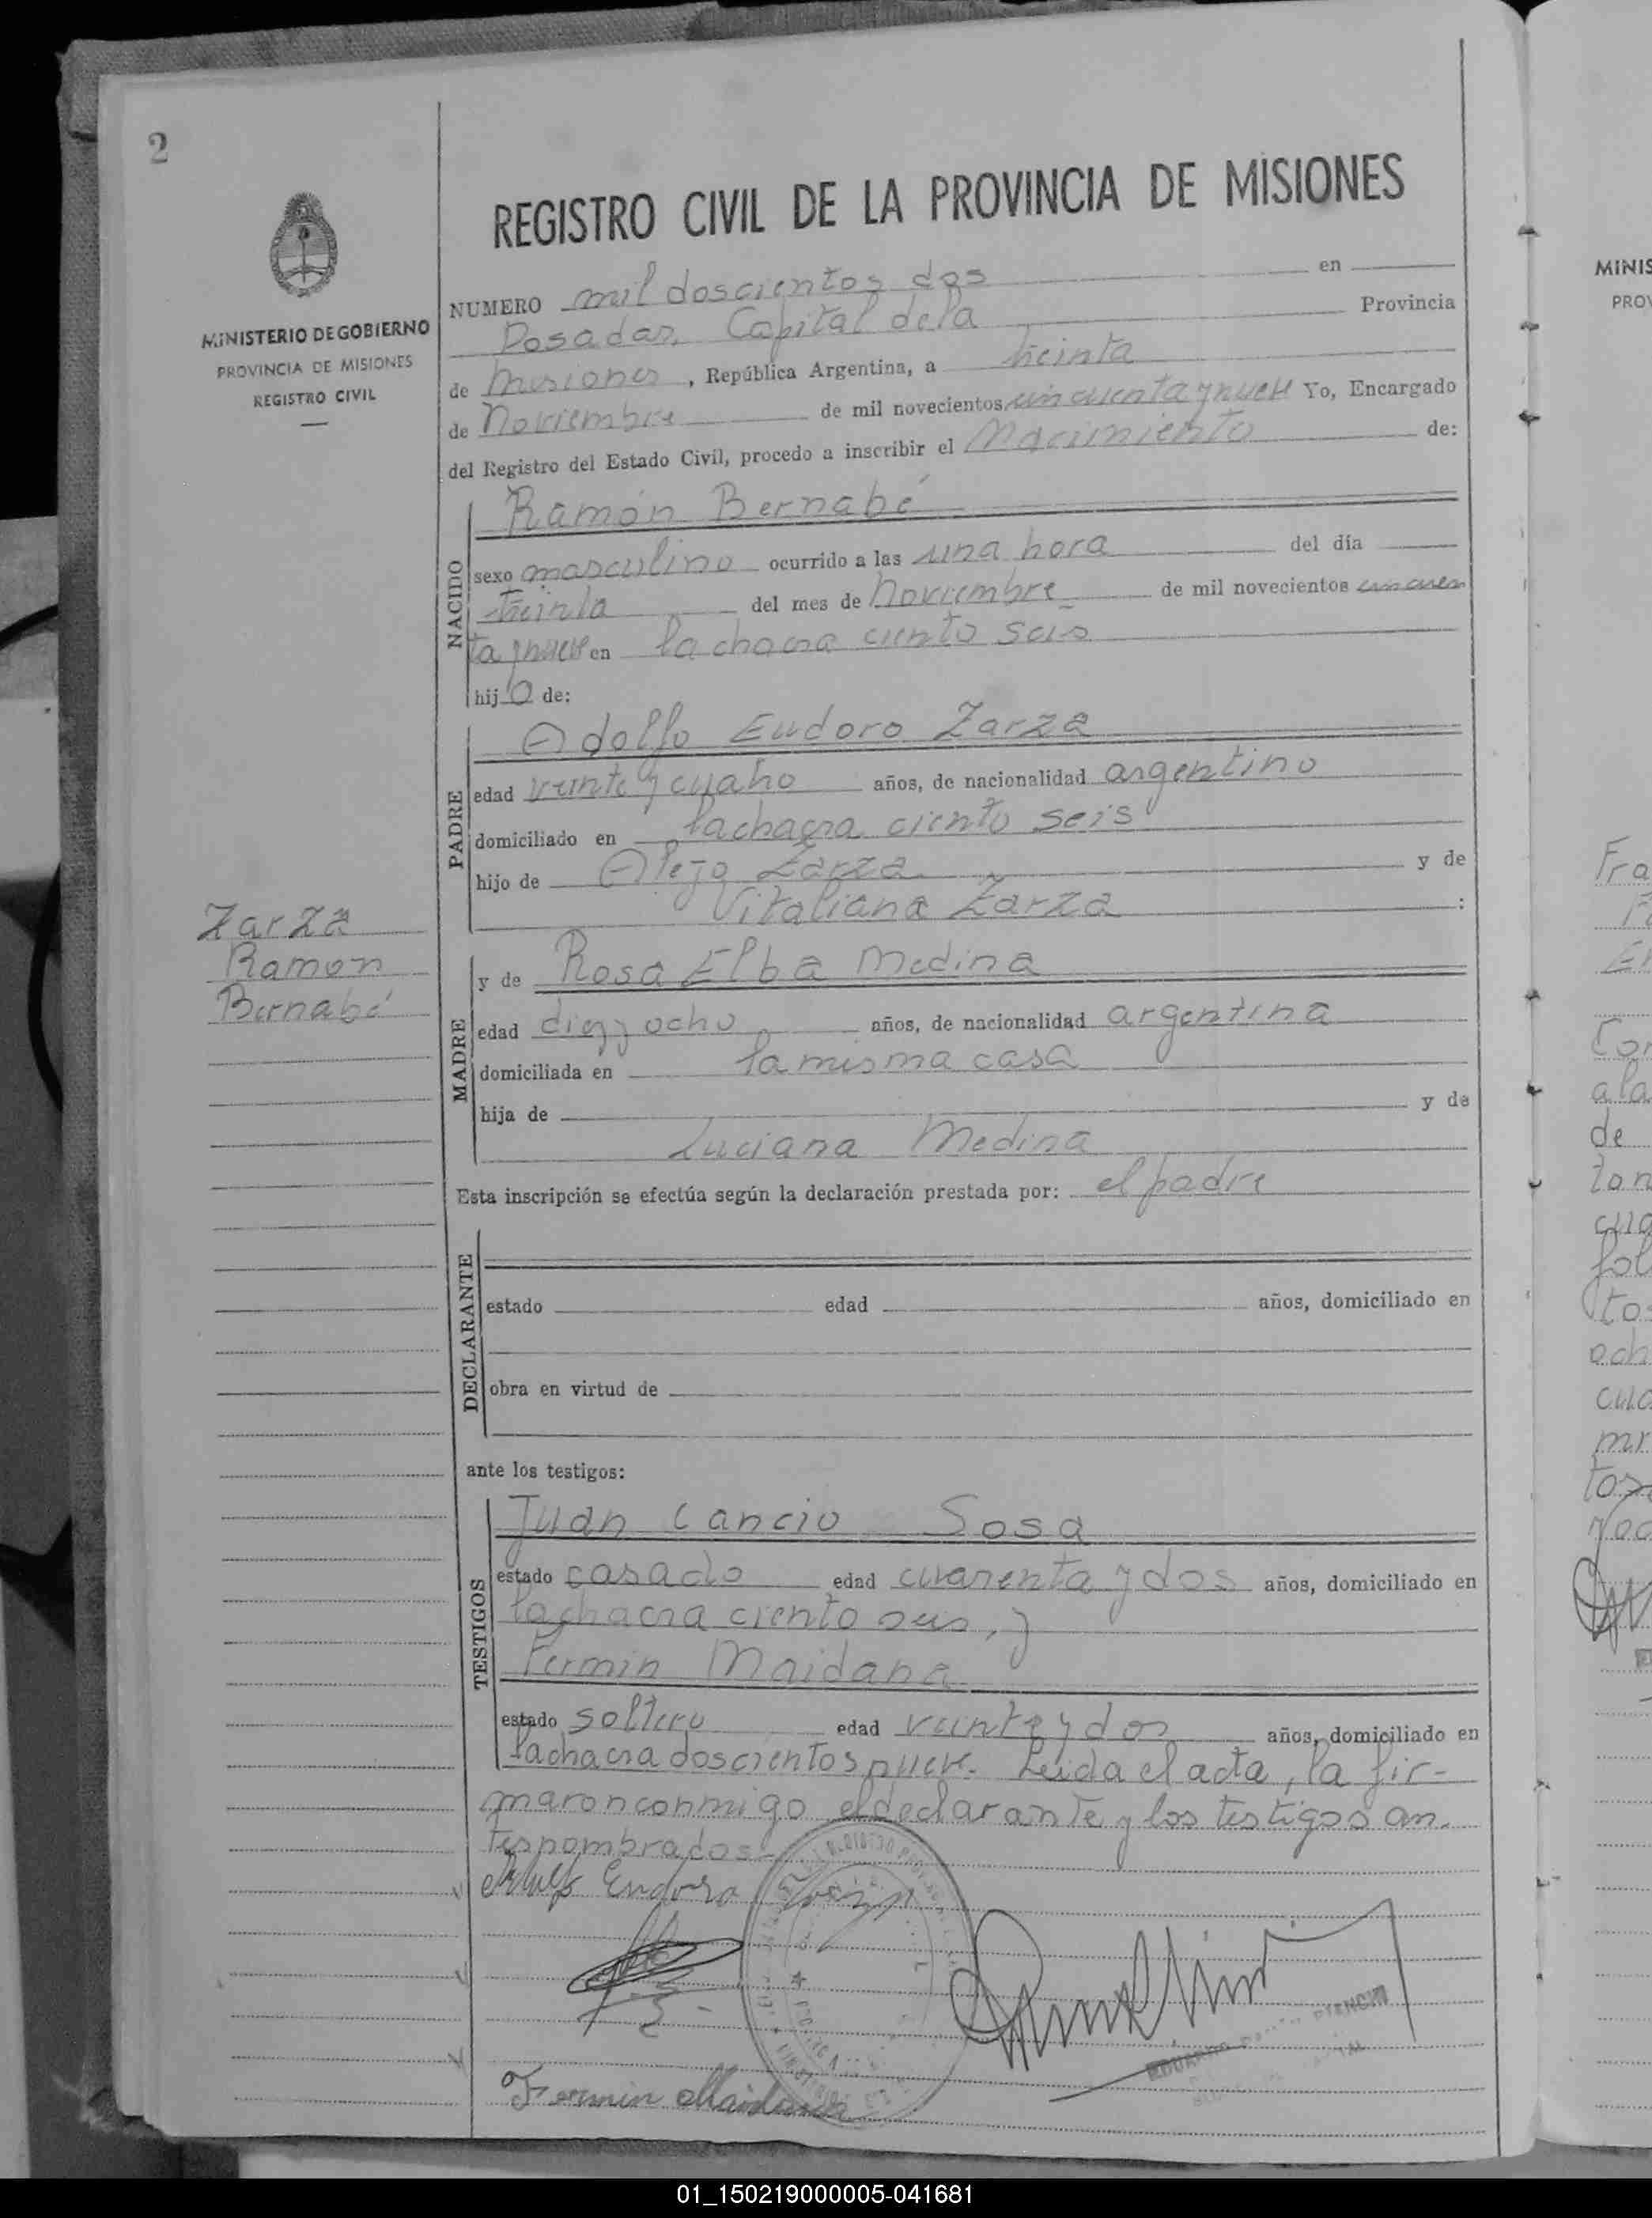 2
REGISTRO CIVIL DE LA PROVINCIA DE MISIONES
MINISTERIO DE GOBIERNO
PROVINCIA DE MISIONES
REGISTRO CIVIL
NUMERO mil doscientos dos en
Posadas, Capital de la Provincia
de Misiones, República Argentina, a treinta
de Noviembre de mil novecientos cincuenta y nueve Yo, Encargado
del Registro del Estado Civil, procedo a inscribir el Nacimiento de:
NACIDO
Ramón Bernabé
sexo masculino ocurrido a las una hora del día
treinta del mes de Noviembre de mil novecientos cincuen
ta y nueve en la chacra ciento seis
hijo de:
PADRE
Adolfo Eudoro Zarza
edad veinte y cuatro años, de nacionalidad argentino
domiciliado en la chacra ciento seis
hijo de Alejo Zarza y de
Vitaliana Zarza :
Zarza
Ramon
Bernabé
MADRE
y de Rosa Elba Medina
edad diez y ocho años, de nacionalidad argentina
domiciliada en la misma casa
hija de y de
Luciana Medina
Esta inscripción se efectúa según la declaración prestada por: el padre
DECLARANTE
estado edad años, domiciliado en
obra en virtud de
ante los testigos:
TESTIGOS
Juan Cancio Sosa
estado casado edad cuarenta y dos años, domiciliado en
la chacra ciento seis, y
Fermin Maidana
estado soltero edad veinte y dos años, domiciliado en
la chacra doscientos nueve. Leida el acta, la fir-
maron conmigo el declarante y los testigos an-
tes nombrados-
Fermin Maidana
MINIS
PRO
Fra
Cor
a la
de
tan
cua
fol
tos
och
cua
01_150219000005-041681